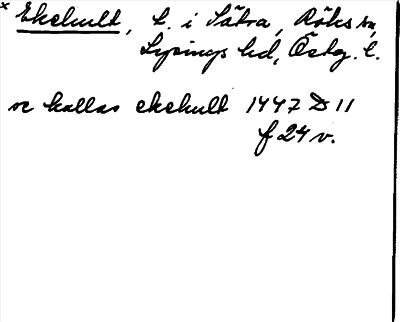 × Ekehult, t. i Sätra, Röks sn,
Lysings hd, Östg. l.
ve kallas ekehult 1447 D 11
f 24 v.